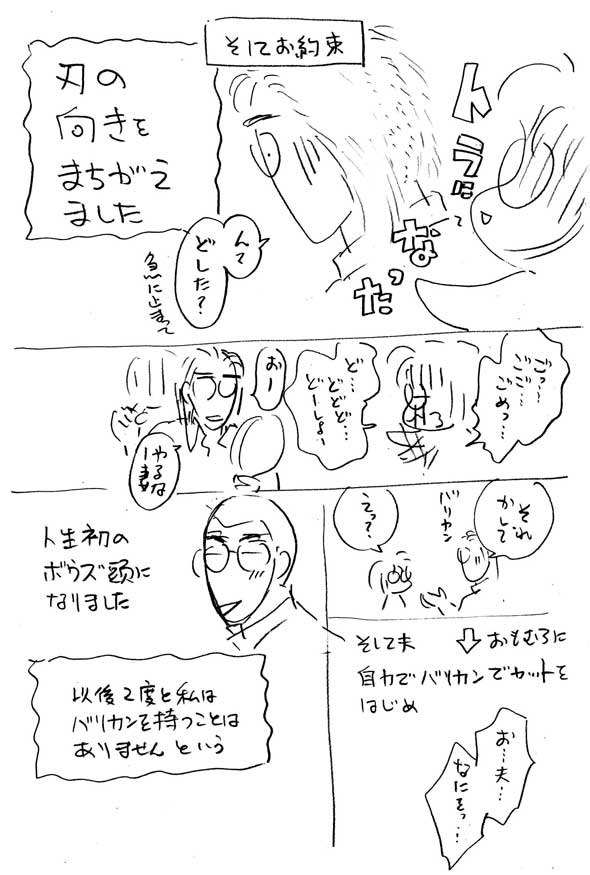 そしてお約束
トラは
なっ
だっ
刃の
向きを
まちがえ
ました
んで
どした?
急に止まって
ごっ…
ごご…
ごめっ…
ど…
どどど…
どーしよ
おー
やるな
ー妻
それ
かして
バリカン
えっ?
そして夫 ↓ おもむろに
自力でバリカンでカットを
はじめ
お…夫…
なにをっ…
人生初の
ボウズ頭に
なりました
以後2度と私は
バリカンを持つことは
ありませんという